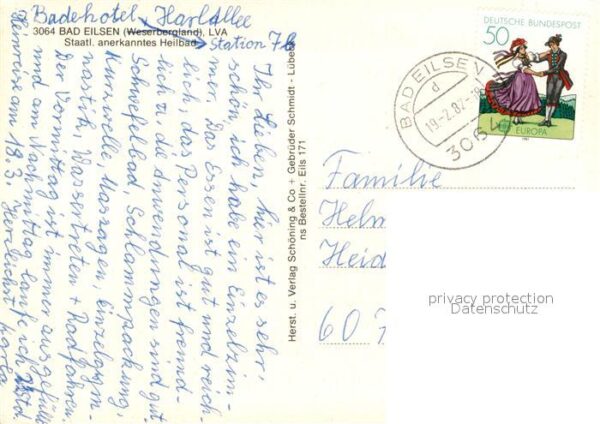 Badehotel Harlallee
3064 BAD EILSEN (Weserbergland), LVA
Staatl. anerkanntes Heilbad
Station 7B
Ihr Lieben, hier ist es sehr
schön, ich habe ein Einzelzim-
mer. Das Essen ist gut und reich-
lich, das Personal ist freund-
lich u. die Anwendungen sind gut
Schwefelbad Schlammpackung,
Kornwelle, Massagen, Einzelgym-
nastik, Wassertreten + Radfahren.
Der Vormittag ist immer ausgefüllt
und am Nachmittag laufe ich
Heimreise am 18.3. Herzlichst
Herst. u. Verlag Schöning & Co + Gebrüder Schmidt - Lübeck
ns Bestellnr. Eils 171
DEUTSCHE BUNDESPOST
50
EUROPA
1981
BAD EILSEN
d
19.-2.82
3064
Familie
Helm
Heid
607
privacy protection
Datenschutz